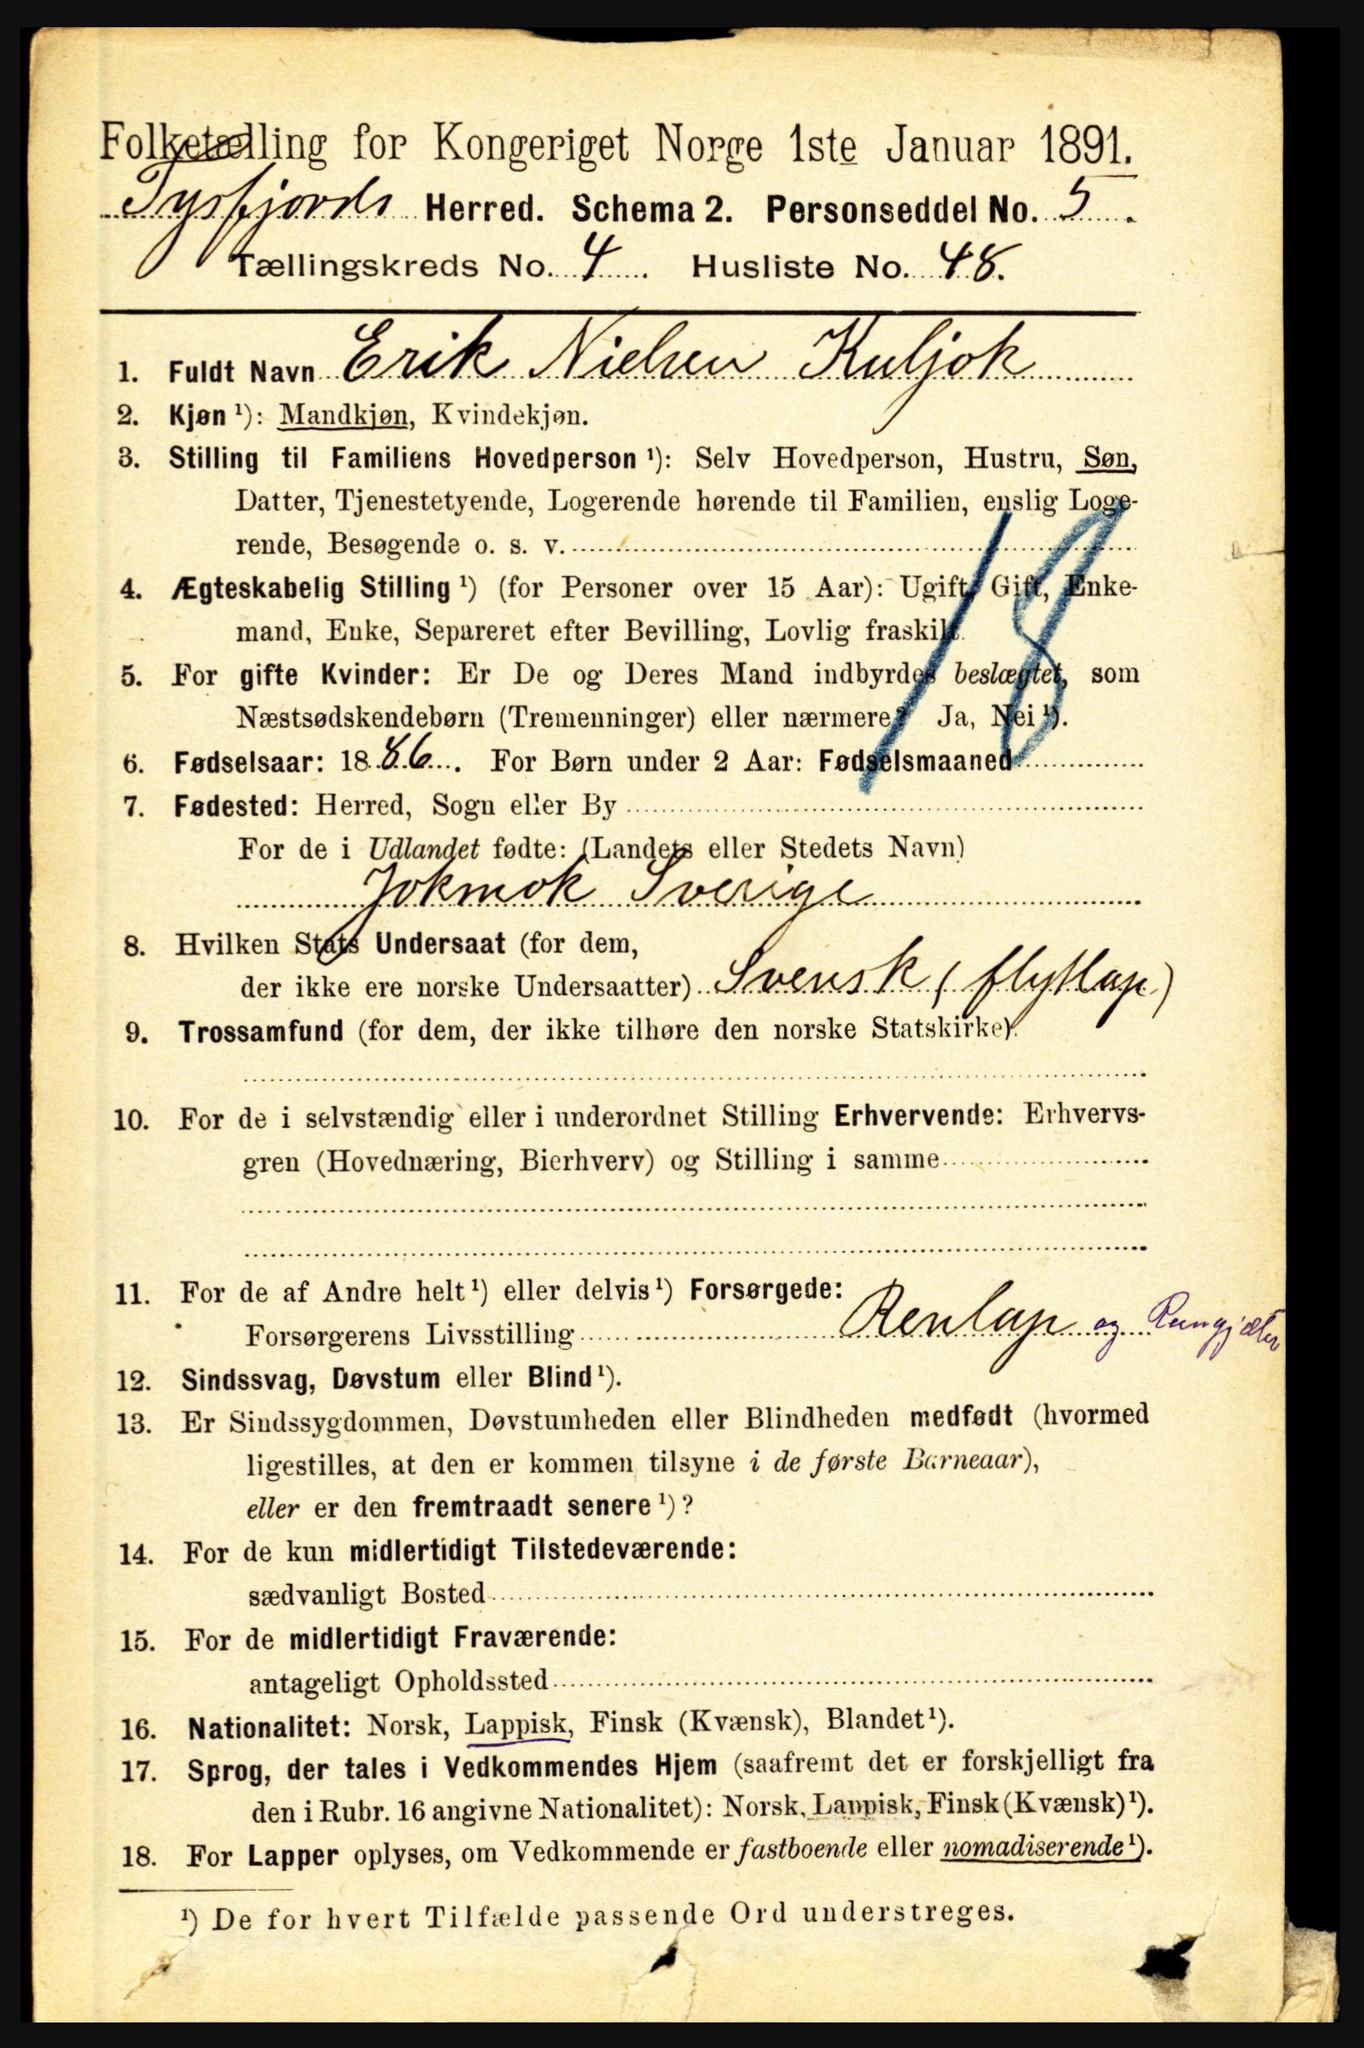 Folketælling for Kongeriget Norge 1ste Januar 1891.
Tysfjords Herred. Schema 2. Personseddel No. 5.
Tællingskreds No. 4. Husliste No. 48.
1. Fuldt Navn Erik Nielsen Kuljok
2. Kjøn ¹): Mandkjøn, Kvindekjøn.
3. Stilling til Familiens Hovedperson ¹): Selv Hovedperson, Hustru, Søn,
Datter, Tjenestetyende, Logerende hørende til Familien, enslig Loge-
rende, Besøgende o. s. v.
18
4. Ægteskabelig Stilling ¹) (for Personer over 15 Aar): Ugift, Gift, Enke-
mand, Enke, Separeret efter Bevilling, Lovlig fraskilt.
5. For gifte Kvinder: Er De og Deres Mand indbyrdes beslægtet, som
Næstsødskendebørn (Tremenninger) eller nærmere? Ja, Nei ¹).
6. Fødselsaar: 1886. For Børn under 2 Aar: Fødselsmaaned
7. Fødested: Herred, Sogn eller By
For de i Udlandet fødte: (Landets eller Stedets Navn)
Jokmok Sverige
8. Hvilken Stats Undersaat (for dem,
der ikke ere norske Undersaatter) Svensk (flytlap)
9. Trossamfund (for dem, der ikke tilhøre den norske Statskirke).
10. For de i selvstændig eller i underordnet Stilling Erhvervende: Erhvervs-
gren (Hovednæring, Bierhverv) og Stilling i samme
11. For de af Andre helt ¹) eller delvis ¹) Forsørgede:
Forsørgerens Livsstilling Renlap og Rengjæter
12. Sindssvag, Døvstum eller Blind ¹).
13. Er Sindssygdommen, Døvstumheden eller Blindheden medfødt (hvormed
ligestilles, at den er kommen tilsyne i de første Barneaar),
eller er den fremtraadt senere ¹)?
14. For de kun midlertidigt Tilstedeværende:
sædvanligt Bosted
15. For de midlertidigt Fraværende:
antageligt Opholdssted
16. Nationalitet: Norsk, Lappisk, Finsk (Kvænsk), Blandet ¹).
17. Sprog, der tales i Vedkommendes Hjem (saafremt det er forskjelligt fra
den i Rubr. 16 angivne Nationalitet): Norsk, Lappisk, Finsk (Kvænsk) ¹).
18. For Lapper oplyses, om Vedkommende er fastboende eller nomadiserende ¹).
¹) De for hvert Tilfælde passende Ord understreges.